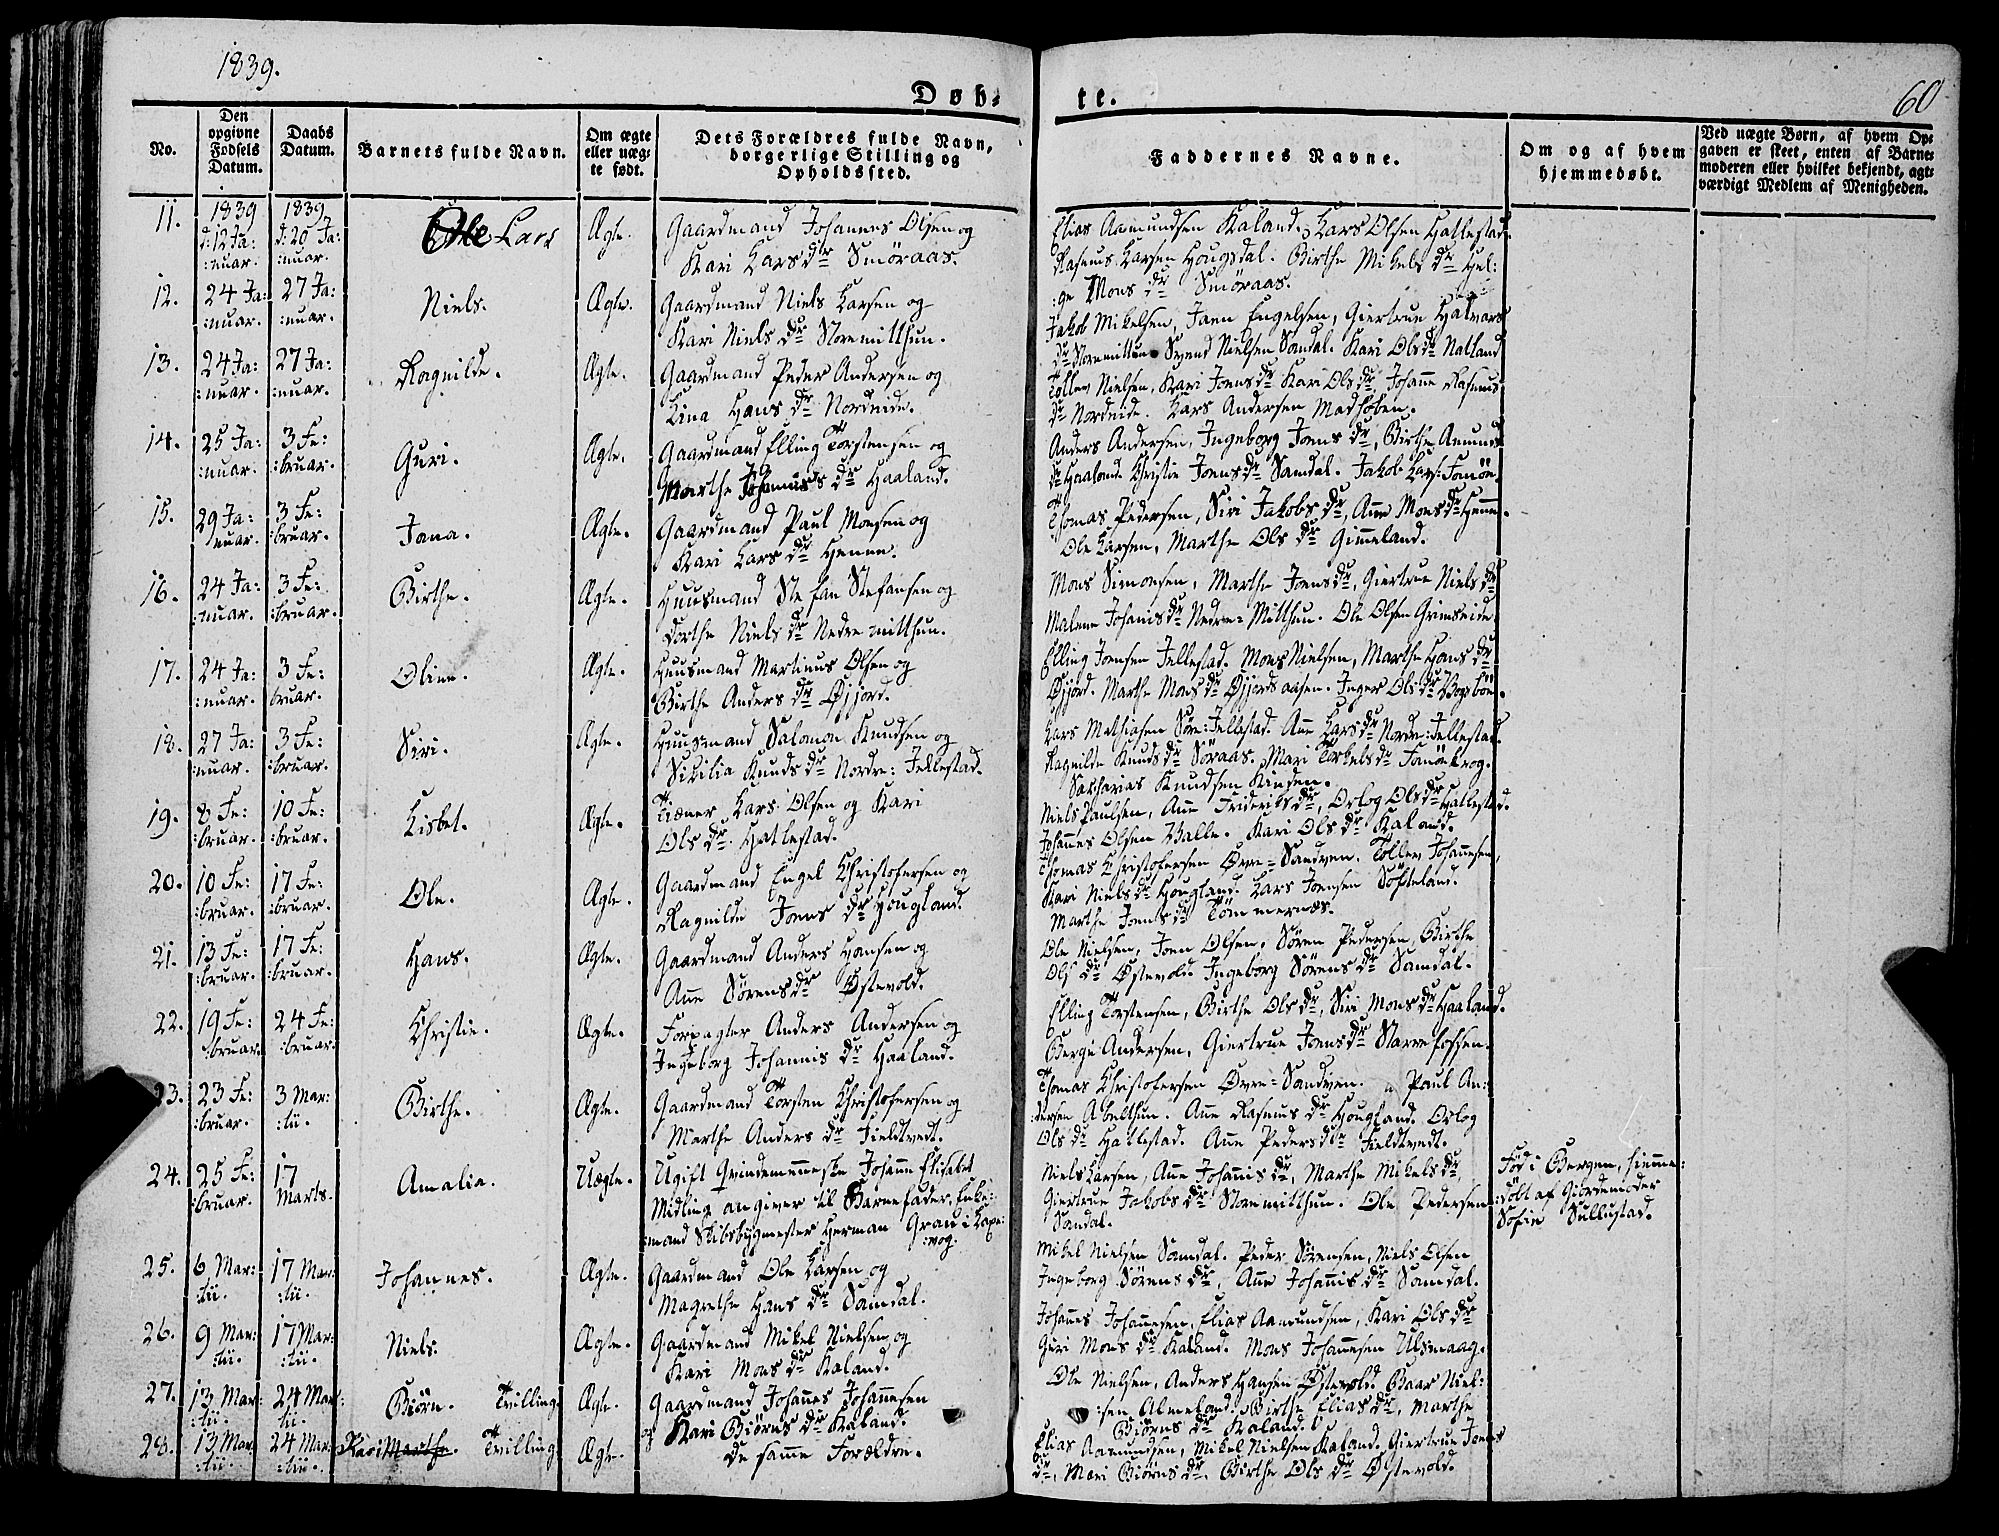 1839.
60
Døb-
te.
No.
Den
opgivne
Fødsels
Datum.
Daabs
Datum.
Barnets fulde Navn.
Om ægte
eller uæg-
te født.
Dets Forældres fulde Navn,
borgerlige Stilling og
Opholdssted.
Faddernes Navne.
Om og af hvem
hjemmedøbt.
Ved uægte Børn, af hvem Op-
gaven er skeet, enten af Barne-
moderen eller hvilket bekjendt, agt-
værdigt Medlem af Menigheden.
11.
1839
d: 12 Ja:
:nuar.
1839
d: 20 Ja:
:nuar.
Lars
Ægte.
Gaardmand Johannes Olsen og
Kari Larsdr Smøraas.
Elias Aamundsen Kaland. Lars Olsen Hatlestad.
Rasmus Larsen Hougsdal. Birthe Mikelsdr Hel:
:ge Monsdr Smøraas.
12.
24 Ja:
:nuar.
27 Ja:
:nuar.
Niels.
Ægte.
Gaardmand Niels Larsen og
Kari Nielsdr Storemitthun.
Jakob Mikelsen, Joen Engelsen, Giertrue Halvors
dr Storemitthun. Svend Nielsen Samdal. Kari Olsdr Natland
13.
24 Ja:
:nuar.
27 Ja:
:nuar.
Ragnilde.
Ægte.
Gaardmand Peder Andersen og
Lina Hansdr Nordeide.
Tollev Nielsen, Kari Joensdr Kari Olsdr Johanne Rasmus
dr Nordeide. Lars Andersen
14.
25 Ja:
:nuar.
3 Fe:
:bruar.
Guri.
Ægte.
Gaardmand Elling Torstensen og
Marthe Johannisdr Haaland.
Anders Andersen, Ingeborg Joensdr, Birthe Amunds
dr Haaland Christie Joensdr Samdal. Jakob Lars:
15.
29 Ja:
nuar.
3 Fe:
:bruar.
Jana.
Ægte.
Gaardmand Paul Monsen og
Kari Larsdr Henne.
Thomas Pedersen, Siri Jakobsdr, Anne Monsdr Henne.
Ole Larsen, Marthe Olsdr Gimmeland.
16.
24 Ja:
:nuar.
3 Fe:
:bruar.
Birthe.
Ægte.
Huusmand Stefan Stefansen og
Dorthe Nielsdr Nedre mitthun.
Mons Simonsen, Marthe Joensdr, Giertrue Nielsdr
Malene Johanisdr Nedre=Mitthun. Ole Olsen Grimseide
17.
24 Ja:
:nuar.
3 Fe:
bruar.
Oline.
Ægte.
Huusmand Martinus Olsen og
Birthe Andersdr Øjjord.
Elling Joensen Jellestad. Mons Nielsen, Marthe Hansdr
Øjjord. Marthe Monsdr Øjjordsaasen. Inger Olsdr
18.
27 Ja:
:nuar.
3 Fe:
:bruar.
Siri.
Ægte.
Huusmand Salomon Knudsen og
Sicilia Knudsdr Nordre: Jellestad.
Lars Mathiasen Søre: Jellestad. Anne Larsdr Nordre: Jellestad.
Ragnilde Knudsdr Søraas. Mari Torkelsdr
Sakharias Knudsen
19.
8 Fe:
:bruar.
10 Fe:
:bruar.
Lisbet.
Ægte.
Tiener Lars Olsen og Kari
Olsdr. Hatlestad.
Niels Paulsen, Anne Frideriksdr, Orlog Olsdr Hatlestad.
Johannes Olsen Balle. Kari Olsdr Kaland.
20.
10 Fe:
:bruar.
17 Fe:
:bruar.
Ole.
Ægte.
Gaardmand Engel Christofersen og
Ragnilde Joensdr Hougland.
Thomas Christofersen Øvre=Sandven. Tollev Johannesen,
Kari Nielsdr Hougland. Lars Joensen Søfteland.
Marthe Joensdr Tømmernæs.
21.
13 Fe:
:bruar.
17 Fe:
:bruar.
Hans.
Ægte.
Gaardmand Anders Hansen og
Anne Sørensdr Østevold.
Ole Nielsen, Joen Olsen, Søren Pedersen, Birthe
Olsdr Østevold. Ingeborg Sørensdr Samdal.
22.
19 Fe:
:bruar.
24 Fe:
:bruar.
Christie.
Ægte.
Forpagter Anders Andersen og
Ingeborg Johannisdr Haaland.
Elling Torstensen, Birthe Olsdr, Siri Monsdr Haaland.
Berge Andersen, Giertrue Joensdr Starrefossen.
23.
23 Fe:
:bruar.
3 Mar:
:tii.
Birthe.
Ægte.
Gaardmand Torsten Christofersen og
Marthe Andersdr Fieldtvedt.
Thomas Christofersen Øvre=Sandven. Paul An:
:dersen Abelthun. Anne Rasmusdr Hougland. Orlog
Olsdr Hatlestad. Anne Pedersdtr Fieldtvedt.
24.
25 Fe:
:bruar.
17
Marts.
Amalia.
Uægte.
Ugift Qvindemenneske Johanne Elisabet
Midling angiver til Barnefader, Enke:
:mand Skibsbygmester Herman Gran i Laxe:
:vog.
Niels Larsen, Anne Johannisdr, Marthe Mikelsdr,
Giertrue Jakobsdr Storemitthun. Ole Pedersen
Samdal.
Fød i Bergen, hiemme:
:døbt af Giordemoder
Sofie Sullustad.
25.
6 Mar:
:tii.
17 Mar:
:tii.
Johannes.
Ægte.
Gaardmand Ole Larsen og
Magrethe Hansdr Samdal.
Mikel Nielsen Samdal. Peder Sørensen, Niels Olsen
Ingeborg Sørensdr, Anne Johannisdr Samdal.
26.
9 Mar:
:tii.
17 Mar:
:tii.
Niels.
Ægte.
Gaardmand Mikel Nielsen og
Kari Monsdr Kaland.
Johannes Johannesen, Elias Aamundsen, Kari Olsdr
Guri Monsdr Kaland. Mons Johannesen Ulsmaag.
27.
13 Mar:
:tii.
24 Mar:
tii.
Biørn. Tvilling
Ægte.
Gaardmand Johannes Johannesen
og Kari Biørnsdr Kaland.
Ole Nielsen, Anders Hansen Østevold. Baar Niel:
:sen Almeland. Birthe Eliasdr, Marthe
Biørnsdr Kaland.
28.
13 Mar
:tii.
24 Mar:
:tii.
Kari Marthe. Tvilling
Ægte.
De samme Forældre.
Elias Aamundsen, Mikel Nielsen Kaland. Giertrue Joens
dr, Mari Biørnsdr, Birthe Olsdr Østevold.